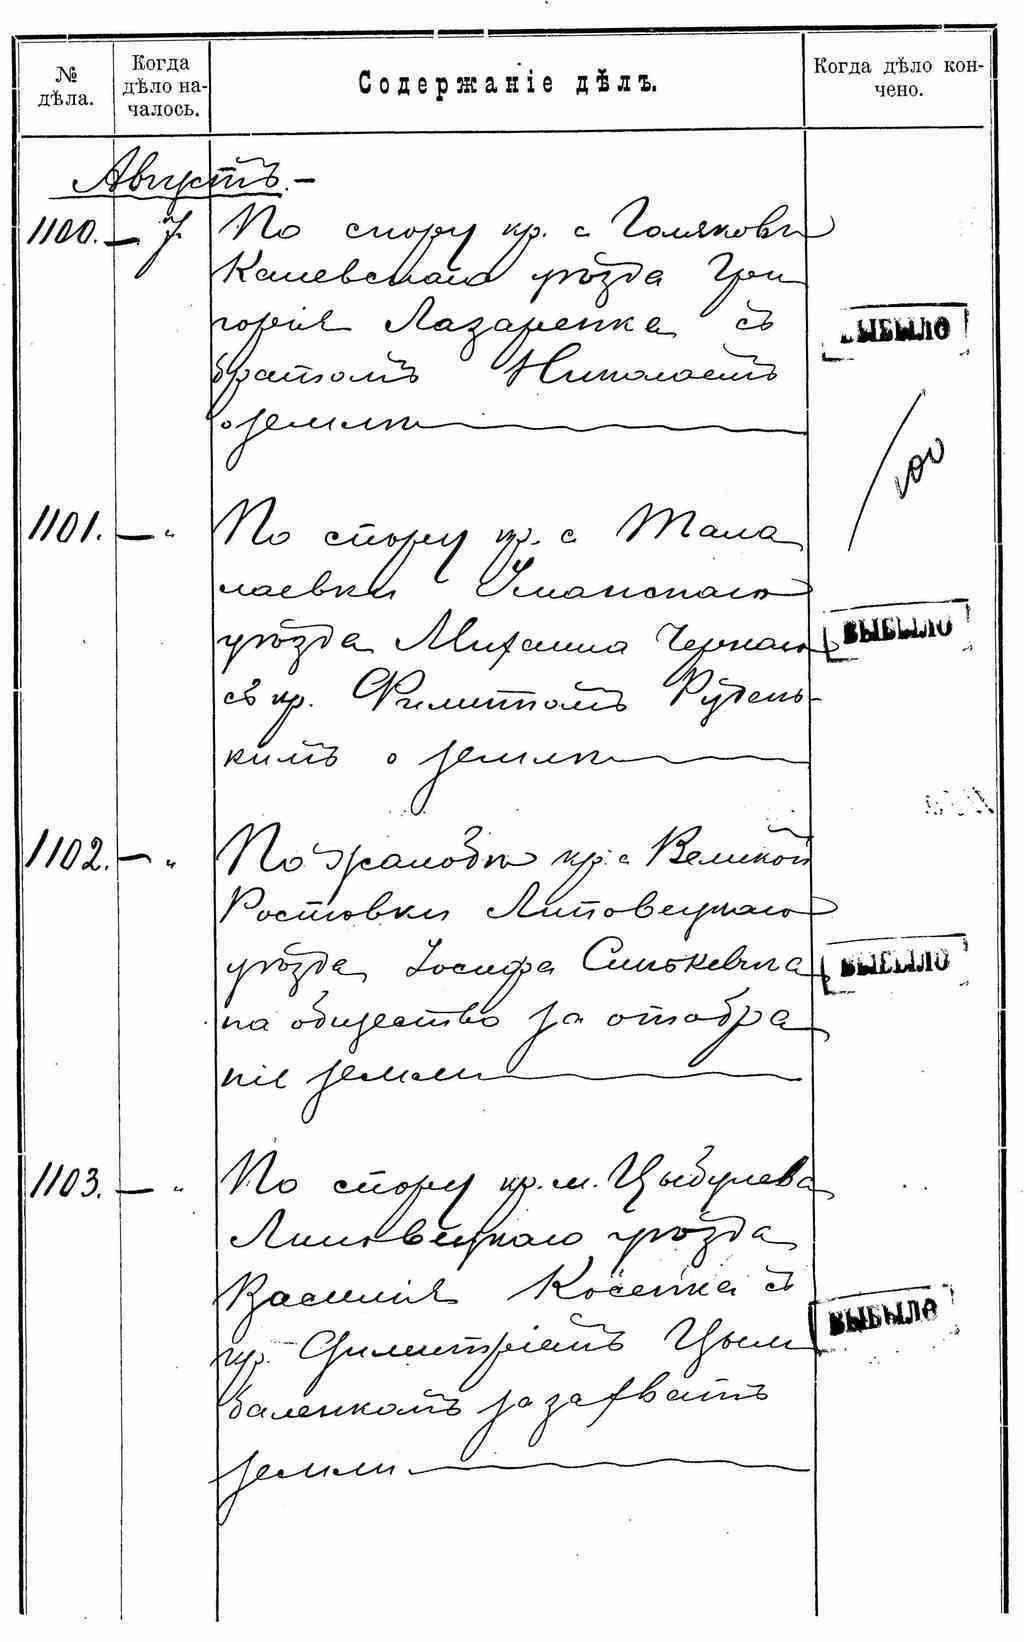 № дѣла.
Когда дѣло началось.
Содержаніе дѣлъ.
Когда дѣло кончено.
Августъ.-
1100. — 7. По спору кр. с. Голяковки
Каневскаго уѣзда Гри
горія Лазаренка съ
братомъ Николаемъ
о землѣ
ВЫБЫЛО
100
1101. — " По спору кр. с. Тала
лаевки Уманскаго
уѣзда Михаила Чернаго
съ кр. Филиппомъ Рудень-
кимъ о землѣ
ВЫБЫЛО
1102. — " По жалобѣ кр. с. Великой
Ростовки Липовецкаго
уѣзда Іосифа Синькевича
на общество за отобра
ніе земли
ВЫБЫЛО
1103. — " По спору кр. м. Цыбулева
Липовецкаго уѣзда
Василія Косенка съ
кр. Димитріемъ Цым
баленкомъ за захватъ
земли
ВЫБЫЛО